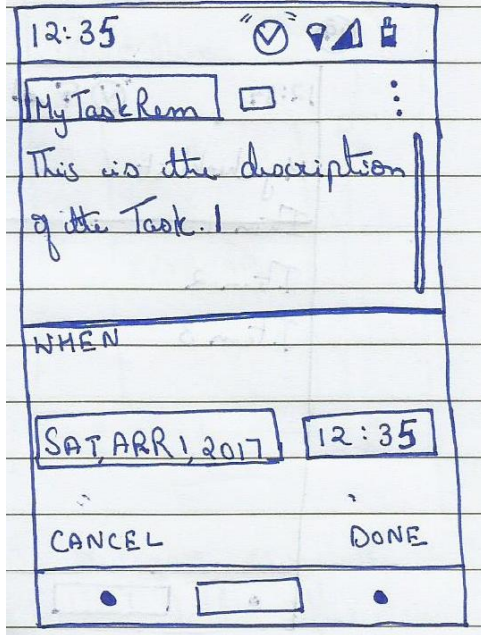 12:35
My Task Rem
This is the description
of the Task.
WHEN
SAT, ARR 1, 2017
12:35
CANCEL
DONE